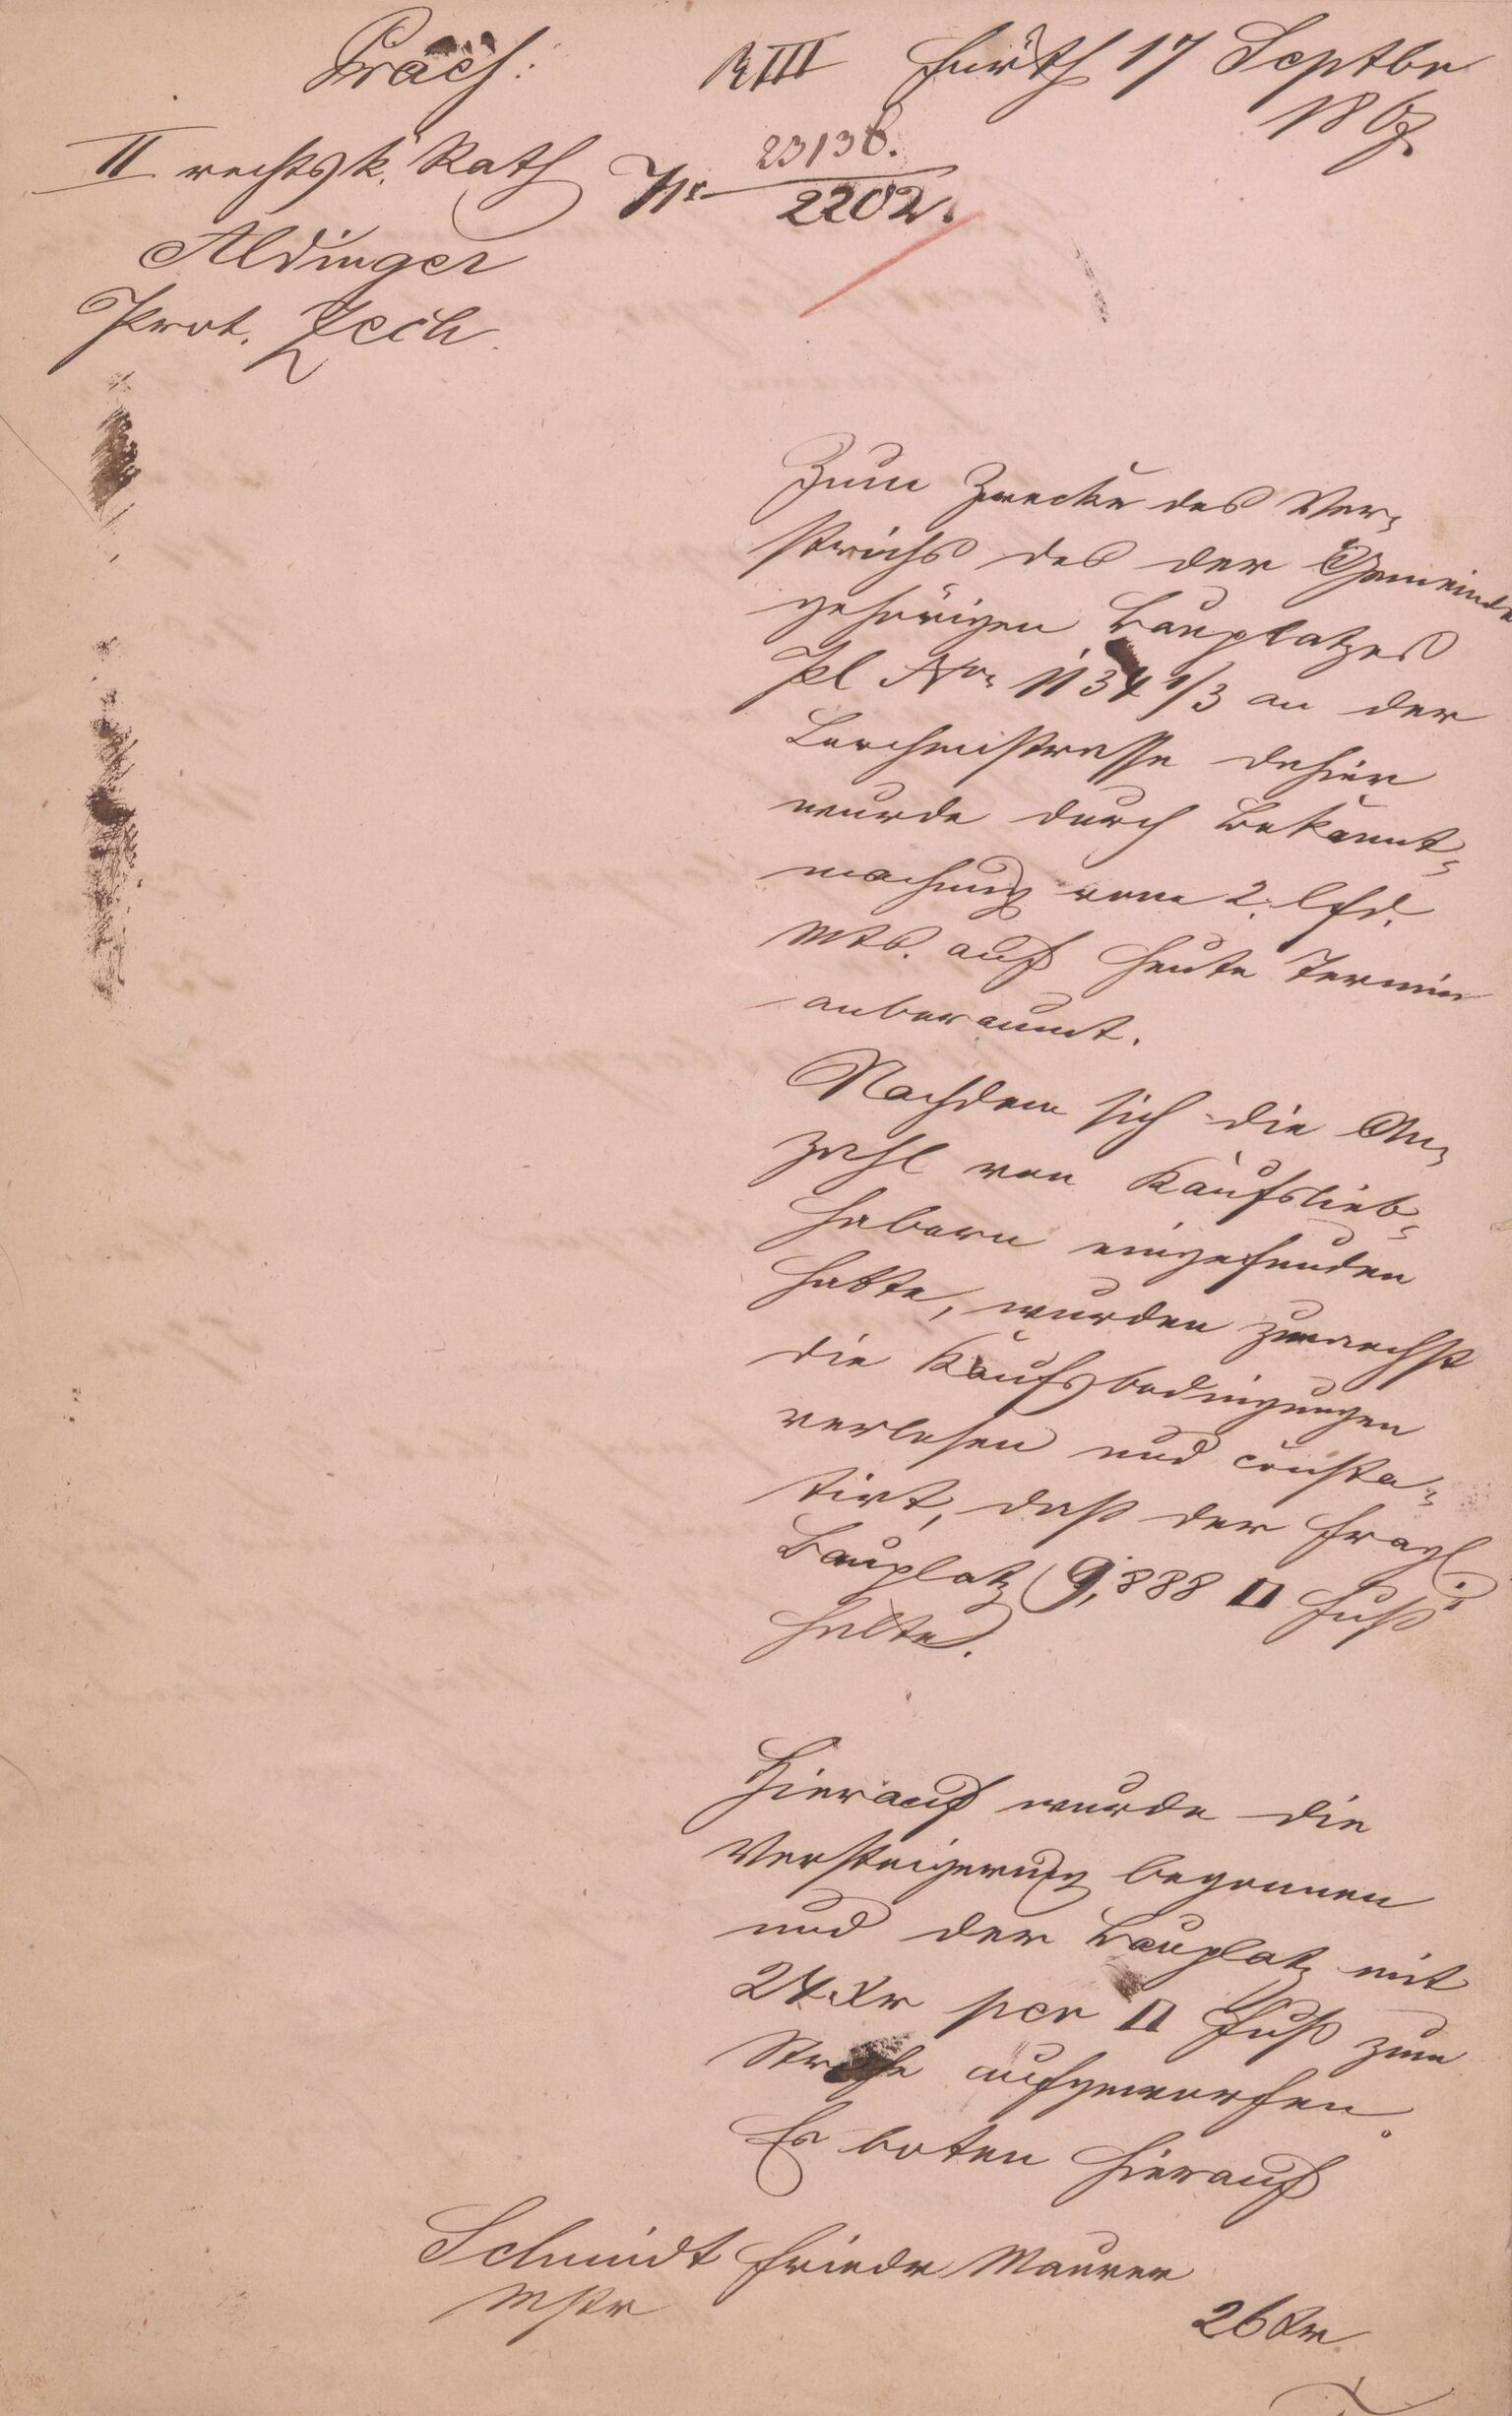 Präs:
RIII Fürth 17 Septbr
1867.
II rechtsk. Rath
Nr 23138.
2202.
Aldinger
Prot. Zech.
Zum Zwecke des Ver-
strichs des der Gemeinde
gehörigen Bauplatzes
Pl Nro 1134 1/3 an der
Lerchenstrasse dahier
wurde durch Bekannt-
machung vom 2. lfd.
Mts. auf heute Termin
anberaumt.
Nachdem sich die An-
zahl von Kaufslieb-
habern eingefunden
hatte, wurden zunaechst
die Kaufsbedingungen
verlesen und consta-
tirt, daß der fragl.
Bauplatz 9,888 □ Fuß
halte.
Hierauf wurde die
Versteigerung begonnen
und der Bauplatz mit
24 Xr per □ Fuß zum
Striche aufgeworfen.
Es boten hierauf
Schmidt Friedr Maurer
Mstr
26 Xr.